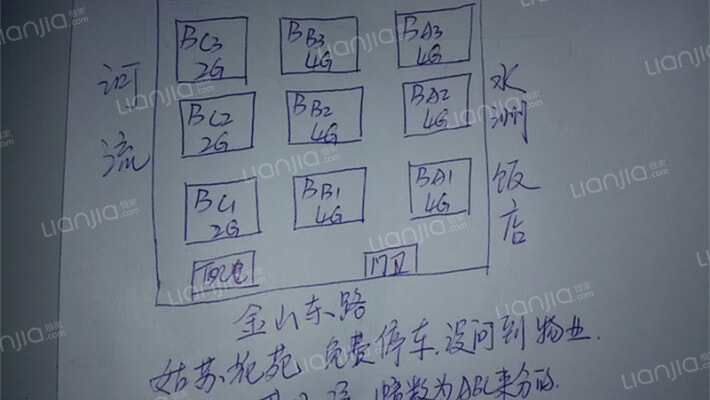 BC3 2G
BB3 4G
BA3 4G
BC2 2G
BB2 4G
BA2 4G
BC1 2G
BB1 4G
BA1 4G
河流
水洲饭店
配电
门卫
金山东路
姑苏 苑 免费停车,没问到物业.
幢数为ABC来分的.
Lianjia.com 链家